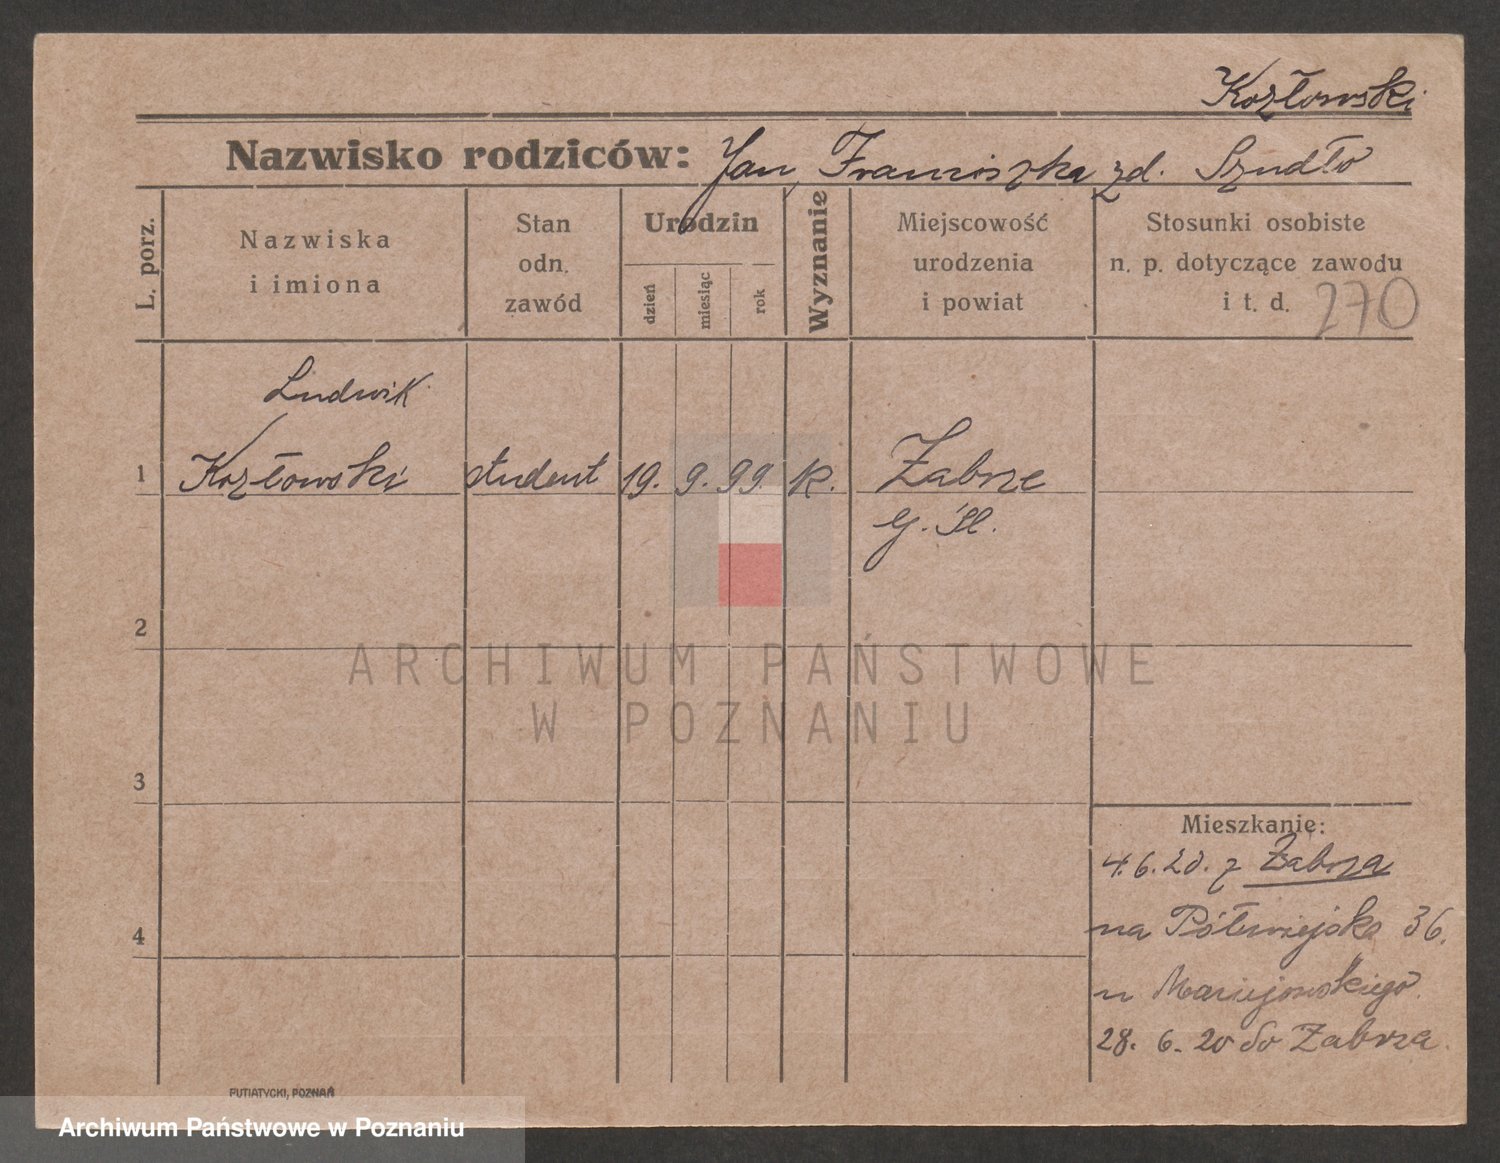 Kozłowski
Nazwisko rodziców: Jan, Franciszka zd. Szudło
L. porz.
Nazwiska
i imiona
Stan
odn.
zawód
Urodzin
dzień
miesiąc
rok
Wyznanie
Miejscowość
urodzenia
i powiat
Stosunki osobiste
n. p. dotyczące zawodu
i t. d. 270
Ludwik
1 Kozłowski student 19. 9. 99. k. Zabrze
G. Śl.
2
ARCHIWUM PAŃSTWOWE
W POZNANIU
3
Mieszkanie:
4. 6. 20. z Zabrza
4
na Półwiejska 36.
u Maciejowskiego.
28. 6. 20 do Zabrza.
PUTIATYCKI, POZNAŃ
Archiwum Państwowe w Poznaniu